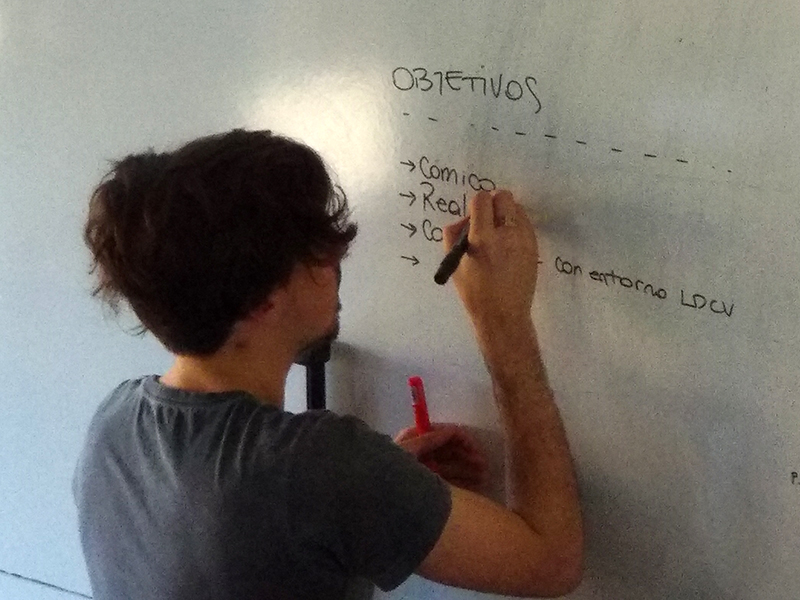 OBJETIVOS
→ Comico
→ Real
→ Co
→ con entorno LDCV